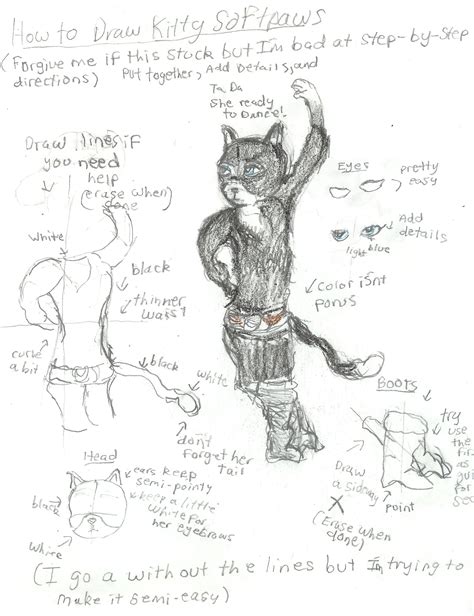 How to Draw Kitty Softpaws
(Forgive me if this stuck but I'm bad at step-by-step
directions)
Put together, Add Details, and
Ta Da
She ready
to Dance!
Draw lines if
you need
help
(erase when
done)
White
black
thinner
waist
curve
a bit
black
White
don't
forget her
tail
Eyes
pretty
easy
Add
details
light blue
color isnt
porus
Boots
try
use
the
as
for
Draw
a sideway
X
(Erase when
done)
point
Head
ears keep
semi-pointy
keep a little
white for
her eyebrows
black
White
(I go a without the lines but Im trying to
make it semi-easy)